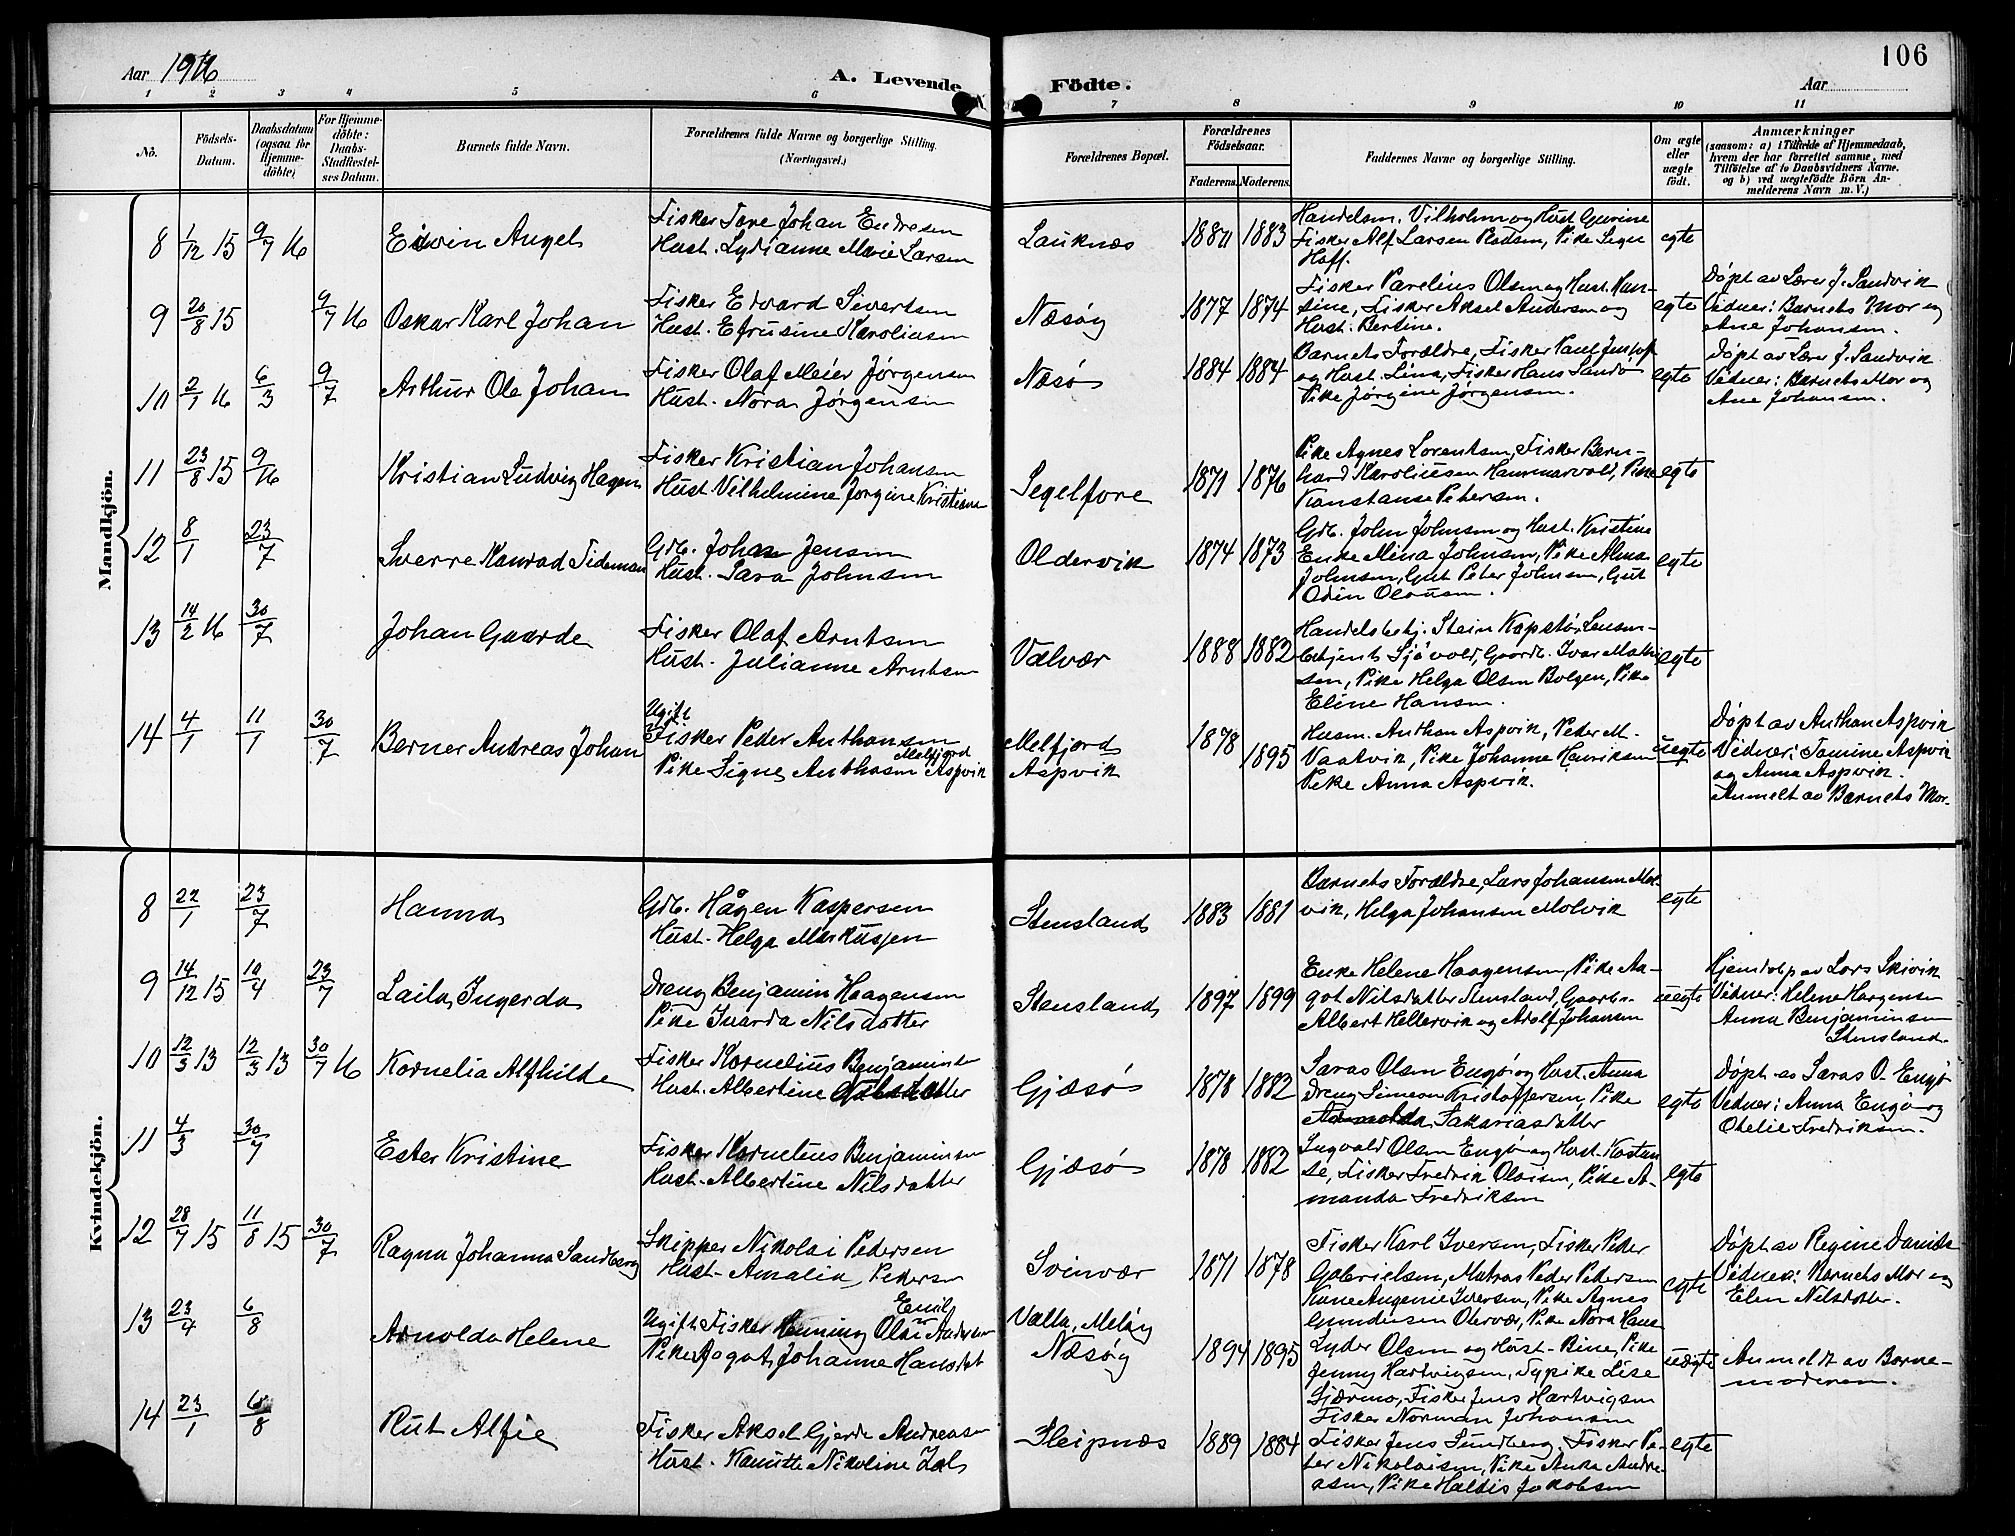 Aar 1916
A. Levende
Födte.
Aar
106
1 2 3 4 5 6 7 8 9 10 11
No.
Födsels-
Datum.
Daabsdatum
(ogsaa for
Hjemme-
döbte)
For Hjemme-
döbte:
Daabs-
Stadfæstel-
ses Datum.
Barnets fulde Navn.
Forældrenes fulde Navne og borgerlige Stilling.
(Næringsvei.)
Forældrenes Bopæl.
Forældrenes
Födselsaar.
Faderens. Moderens.
Faddernes Navne og borgerlige Stilling.
Om ægte
eller
uægte
födt.
Anmærkninger
(saasom: a) i Tilfælde af Hjemmedaab,
hvem der har forrettet samme, med
Tilföielse af to Daabsvidners Navne,
og b) ved uægtefödte Börn An-
melderens Navn m. V.)
Mandkjön.
8 1/12 15 9/7 16
Edvin Angel
Fisker Tore Johan Endresen
Hust. Lydianne Marie Larsen
Lauknæs
1880 1883
Handelsm. Vilholm og Hust. Gurine
Fisker Alf Larsen Rødsen, Pike Signe
Hoff.
egte
9 20/8 15 9/7 16
Oskar Karl Johan
Fisker Edvard Sivertsen
Hust. Efrusine Karoliusen
Næsøy
1877 1874
Fisker Parelius Olsen og Hust. Han-
sine, Fisker Aksel Andersen og
Hust. Bertine.
egte
Døpt av Lærer J. Sandvik
Vidner: Barnets Mor og
Ane Johansen.
10 2/1 16 6/3 9/7
Arthur Ole Johan
Fisker Olaf Meier Jørgensen
Hust. Nora Jørgensen
Næsø
1884 1884
Barnets Forældre, Fisker Paul Jentoft
og Hust. Lina, Fisker Hans Sandø
Pike Jørgine Jørgensen.
egte
Døpt av Lærer J. Sandvik
Vidner: Barnets Mor og
Ane Johansen.
11 23/8 15 9/16
Kristian Ludvig Hagen
Fisker Kristian Johansen
Hust. Vilhelmine Jørgine Kristiane
Segelfore
1871 1876
Pike Agnes Lorentsen, Fisker Bern-
hard Karoliusen Hammarvold, Pike
Konstanse Petersen.
egte
12 8/1 23/7
Sverre Konrad Tideman
Gdb. Johan Jensen
Hust. Sara Johnsen
Oldervik
1874 1873
Gdb. John Johnsen og Hust. Kristine
Enke Mina Johnsen, Pike Alma
Johnsen, Gut Peter Johnsen, Gut
Odin Olausen.
egte
13 14/2 16 30/7
Johan Gaarde
Fisker Olaf Arntsen
Hust. Julianne Arntsen
Valvær
1888 1882
Handelsbetj. Stein Kapstø, Lensm-
betjent Sjøvold, Gaardb. Ivar Mathi-
sen, Pike Helga Olsen Bolgen, Pike
Eline Hansen.
egte
14 4/1 11/1 30/7
Berner Andreas Johan
Ugift
Fisker Peder Anthonsen Melfjord
Pike Signe Anthonsen Aspvik
Melfjord
Aspvik
1878 1895
Husm. Anthon Aspvik, Peder M.
Vaatvik, Pike Johanne Henriksen
Pike Anna Aspvik.
uegte
Døpt av Anthon Aspvik
Vidner: Tomine Aspvik
og Anna Aspvik.
Anmelt av Barnets Mor.
Kvindekjön.
8 22/1 23/7
Hanna
Gdb. Hågen Kaspersen
Hust. Helga Markussen
Stensland
1883 1881
Barnets Forældre, Lars Johansen Mol-
vik, Helga Johansen Molvik
egte
9 14/12 15 10/4 23/7
Laila Ingerda
Dreng Benjamin Haagensen
Pike Ivarda Nilsdatter
Stensland
1897 1899
Enke Helene Haagensen, Pike Aa-
got Nilsdatter Stensland, Gaardb.
Albert Hellervik og Adolf Johansen
uegte
Hjemdøp av Lars Skivik
Vidner: Helene Haagensen
Anna Benjaminsen
Stensland.
10 12/3 13 12/3 13 30/7 16
Kornelia Alfhilde
Fisker Kornelius Benjaminsen
Hust. Albertine Nilsdatter
Gjæsø
1878 1882
Saras Olsen Engø og Hust. Anna
Dreng Simeon Kristoffersen, Pike
Arnolda Sakariasdatter
egte
Døpt av Saras O. Engø
Vidner: Anna Engø og
Otelie Fredriksen.
11 4/3 30/7
Ester Kristine
Fisker Kornelius Benjaminsen
Hust. Albertine Nilsdatter
Gjæsø
1878 1882
Ingvald Olsen Engø og Hust. Kostan
se, Fisker Fredrik Olaisen, Pike A-
manda Fredriksen
egte
12 28/7 15 11/8 15 30/7
Ragna Johanna Sandberg
Skipper Nikolai Pedersen
Hust. Amalia Pedersen
Svinvær
1871 1878
Fisker Karl Iversen, Fisker Peder
Gabrielsen, Matros Peder Pedersen
Kone Augenie Iversen, Pike Agnes
Gundersen Olsvær, Pike Nora Hans
egte
Døpt av Regine Davids
Vidner: Barnets Mor og
Elen Nilsdatter.
13 23/4 6/8
Arnolda Helene
Ugift Fisker Henning Olai Emil Andersen
Pike Aagot Johanne Hansdat
Valla, Meløy
Næsøy
1894 1895
Lyder Olsen og Hust. Bine, Pike
Jenny Hartvigsen, Typike Lise
Sjærmo, Fisker Jens Hartvigsen
Fisker Norman Johansen
uegte
Anmeldt av Barne-
moderen.
14 23/1 6/8
Rut Alfie
Fisker Aksel Gjerde Andreasen
Hust. Kamitte Nikoline
Sleipnæs
1889 1884
Fisker Jens Sundberg, Fisker Pe-
ter Nikolaisen, Pike Anka Andre-
asen, Pike Haldis Jakobsen
egte